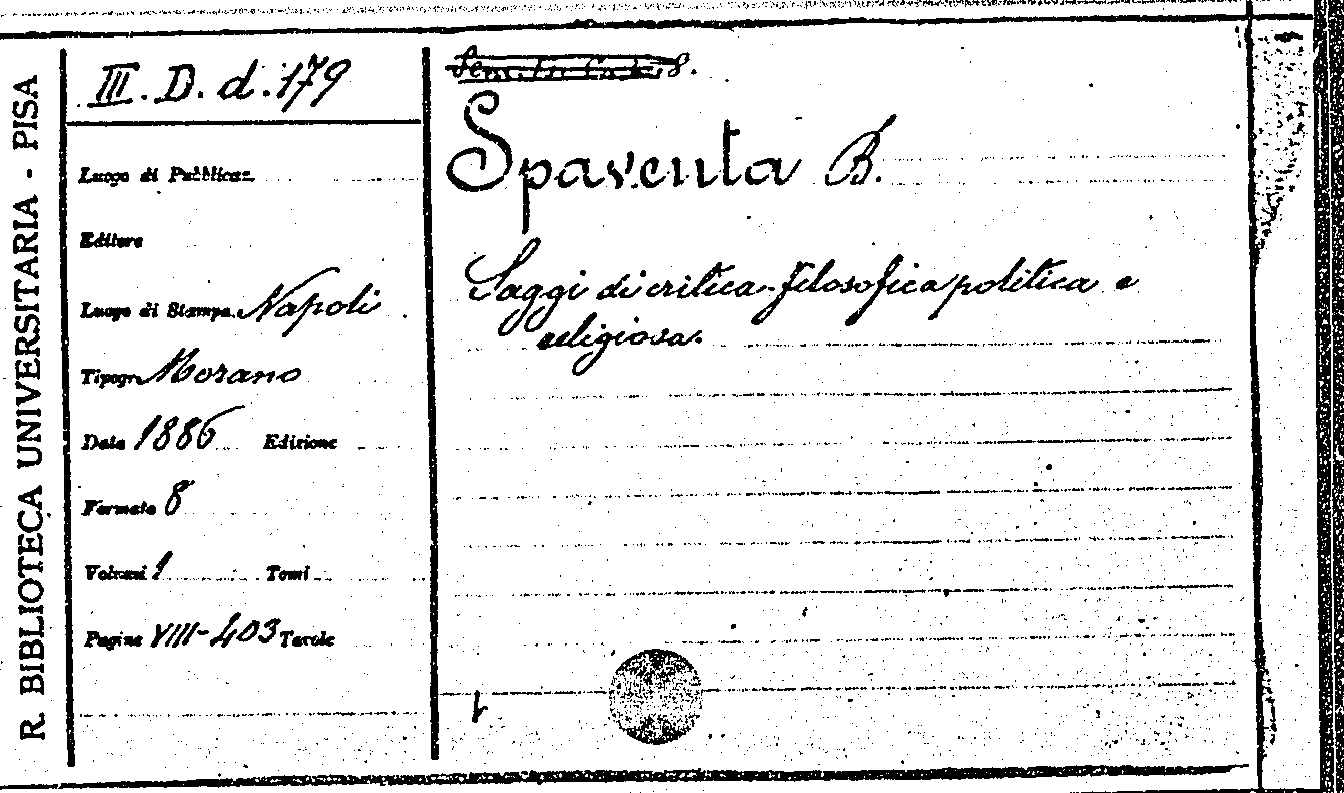 R. BIBLIOTECA UNIVERSITARIA - PISA
III. D. d. 179
Luogo di Pubblicaz.
Editore
Luogo di Stampa Napoli
Tipogr. Morano
Data 1886 Edizione
Formato 8
Volumi 1 Tomi
Pagine VIII-403 Tavole
8.
Spaventa B.
Saggi di critica filosofica politica e
religiosa.